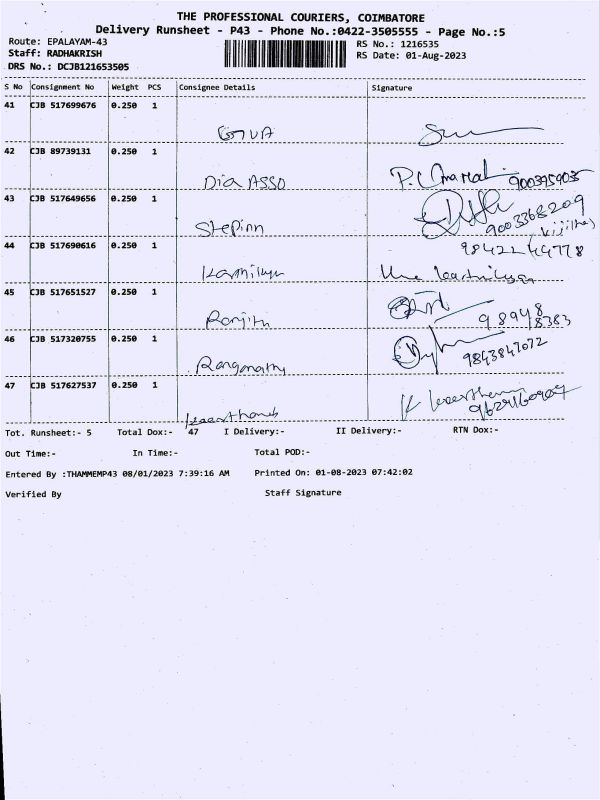 THE PROFESSIONAL COURIERS, COIMBATORE
Delivery Runsheet - P43 - Phone No.:0422-3505555 - Page No.:5
Route: EPALAYAM-43 RS No.: 1216535
Staff: RADHAKRISH RS Date: 01-Aug-2023
DRS No.: DCJB121653505
S No Consignment No Weight PCS Consignee Details Signature
41 CJB 517699676 0.250 1
42 CJB 89739131 0.250 1
Dia ASSO
43 CJB 517649656 0.250 1
Stepinn 9003368209
44 CJB 517690616 0.250 1 9842244778
45 CJB 517651527 0.250 1
Ranjith 98948
8383
46 CJB 517320755 0.250 1
9843847072
47 CJB 517627537 0.250 1
Tot. Runsheet:- 5 Total Dox:- 47 I Delivery:- II Delivery:- RTN Dox:-
Out Time:- In Time:- Total POD:-
Entered By :THAMMEMP43 08/01/2023 7:39:16 AM Printed On: 01-08-2023 07:42:02
Verified By Staff Signature